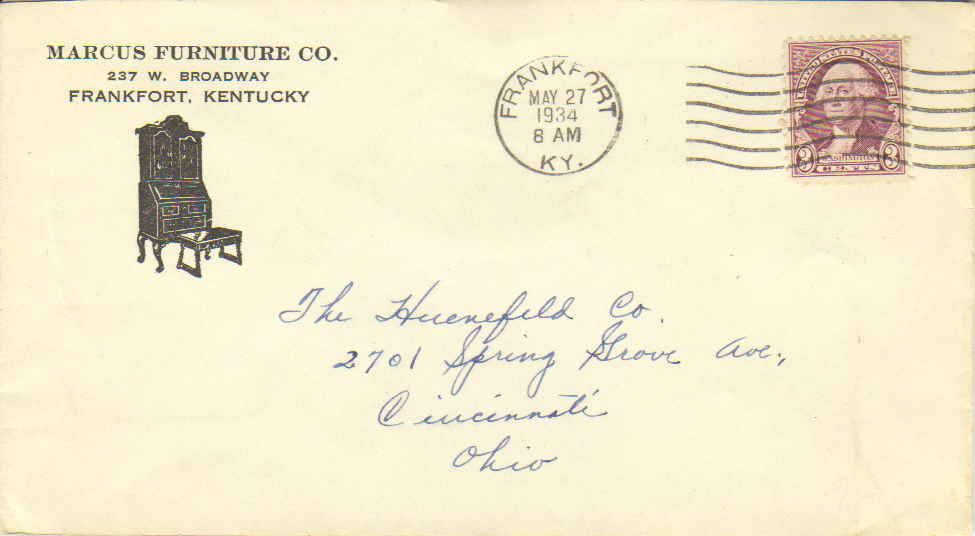 MARCUS FURNITURE CO.
237 W. BROADWAY
FRANKFORT, KENTUCKY
FRANKFORT
MAY 27
1934
8 AM
KY.
UNITED STATES POSTAGE
WASHINGTON
3 CENTS 3
The Huenefeld Co.
2701 Spring Grove Ave.,
Cincinnati
Ohio